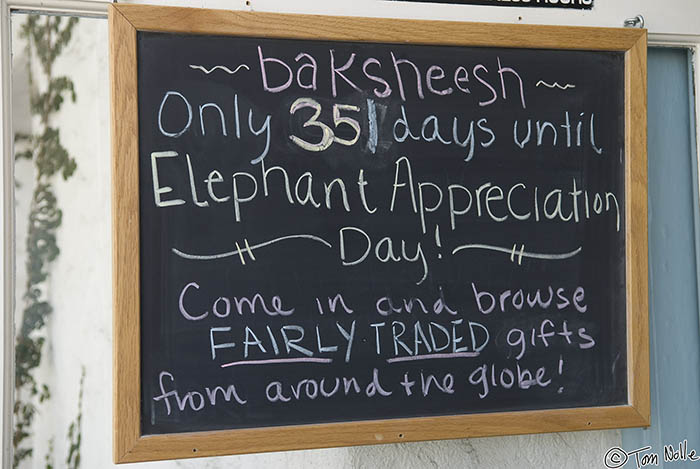 ~ baksheesh ~
Only 351 days until
Elephant Appreciation
Day!
Come in and browse
FAIRLY TRADED gifts
from around the globe!
© Tom Nolle